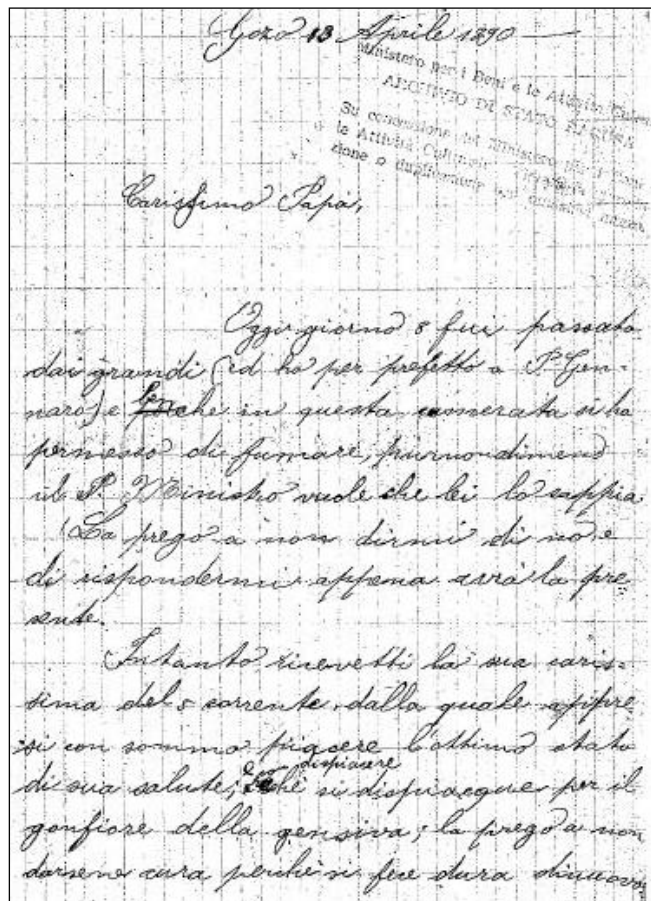 Gozo 13 Aprile 1890
Ministero per i Beni e le Attività
ARCHIVIO DI STATO
Su concessione del Ministero per i Beni
le Attività Culturali
zione o duplicazione con qualsiasi mezzo
Carissimo Papà,
Oggi giorno 8 fui passato
dai grandi (ed ho per prefetto a P. Gen-
naro) e che in questa camerata si ha
permesso di fumare, purnondimeno
il P. Ministro vuole che lei lo sappia
La prego a non dirmi di no e
di rispondermi appena avrà la pre
sente.
Intanto ricevetti la sua caris=
sima del 5 corrente, dalla quale appre
si con sommo piacere l'ottimo stato
dispiacere
di sua salute; si dispiacque per il
gonfiore della gensiva; la prego a non
darsene cura perchè si fece dura dinuovo